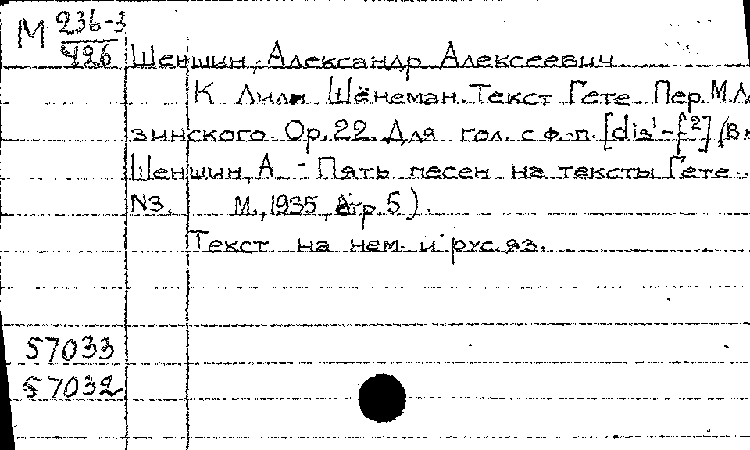 М 236-3
426
Шеншин, Александр Алексеевич
К Лили Шёнеман. Текст Гете. Пер. М.А.
зинского. Op. 22. Для гол. с ф.-п. [dis¹-f²] (В
Шеншин, А. - Пять песен на тексты Гете.
N3. М., 1935, стр. 5).
Текст на нем. и рус. яз.
57033
57032